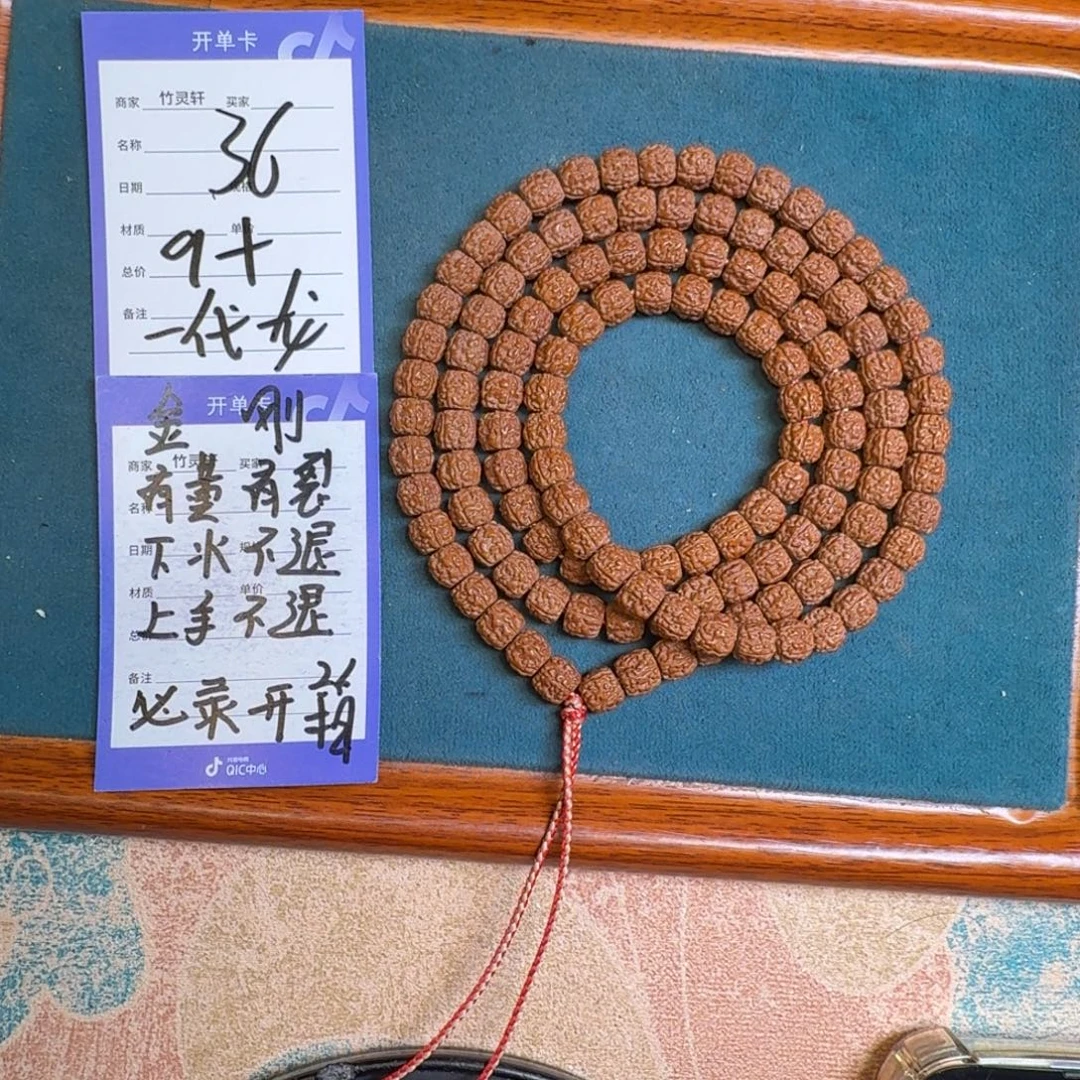 开单卡
商家 竹灵轩 买家
名称 36
日期
材质 单价
9+
总价
备注
一代龙
开单卡
金刚
商家 竹灵 买家
有董有裂
名称
日期
下水不退
材质 单价
上手不退
总
备注
必录开箱
抖音电商
QIC中心